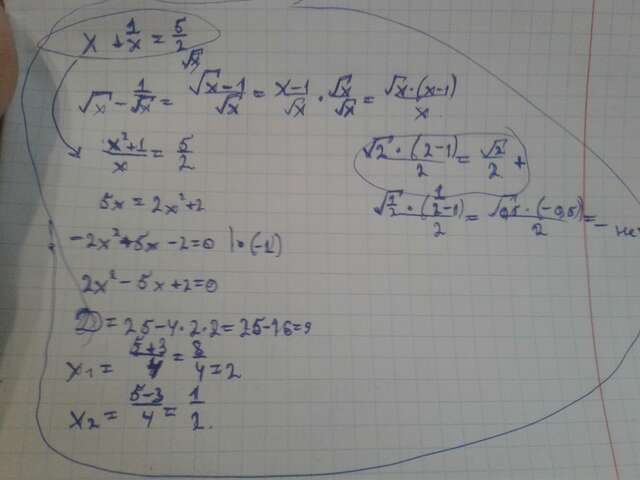 x + 1/x = 5/2
√x
√x - 1/√x = √x-1/√x = x-1/√x · √x/√x = √x·(x-1)/x
x²+1/x = 5/2
5x = 2x²+2
-2x²+5x-2=0 |·(-1)
2x²-5x+2=0
D = 25-4·2·2=25-16=9
x₁ = 5+3/4 = 8/4 = 2
x₂ = 5-3/4 = 1/2.
√2·(2-1)/2 = √2/2 +
√1/2·(1/2-1)/2 = √0,5·(-0,5)/2 = -